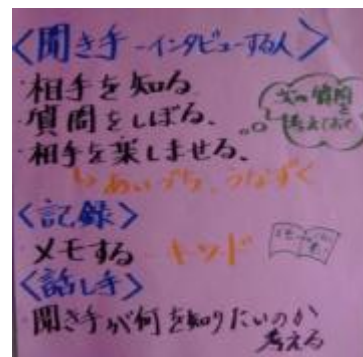 <聞き手-インタビューする人>
・相手を知る
・質問をしぼる、
・相手を楽しませる、
次の質問を
考えておく
↳あいづち、うなずく
<記録>
メモする
<話し手>
・聞き手が何を知りたいのか
考える